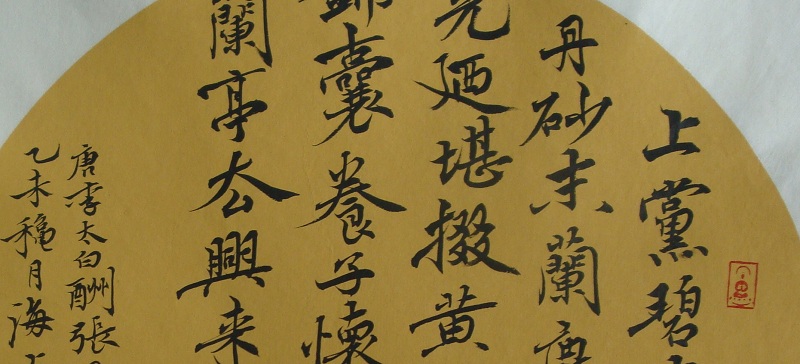 上黨碧
丹砂末蘭麝
光廼堪掇黄
錦囊養子懷
蘭亭去興来
唐李太白酬張
乙未穐月海上